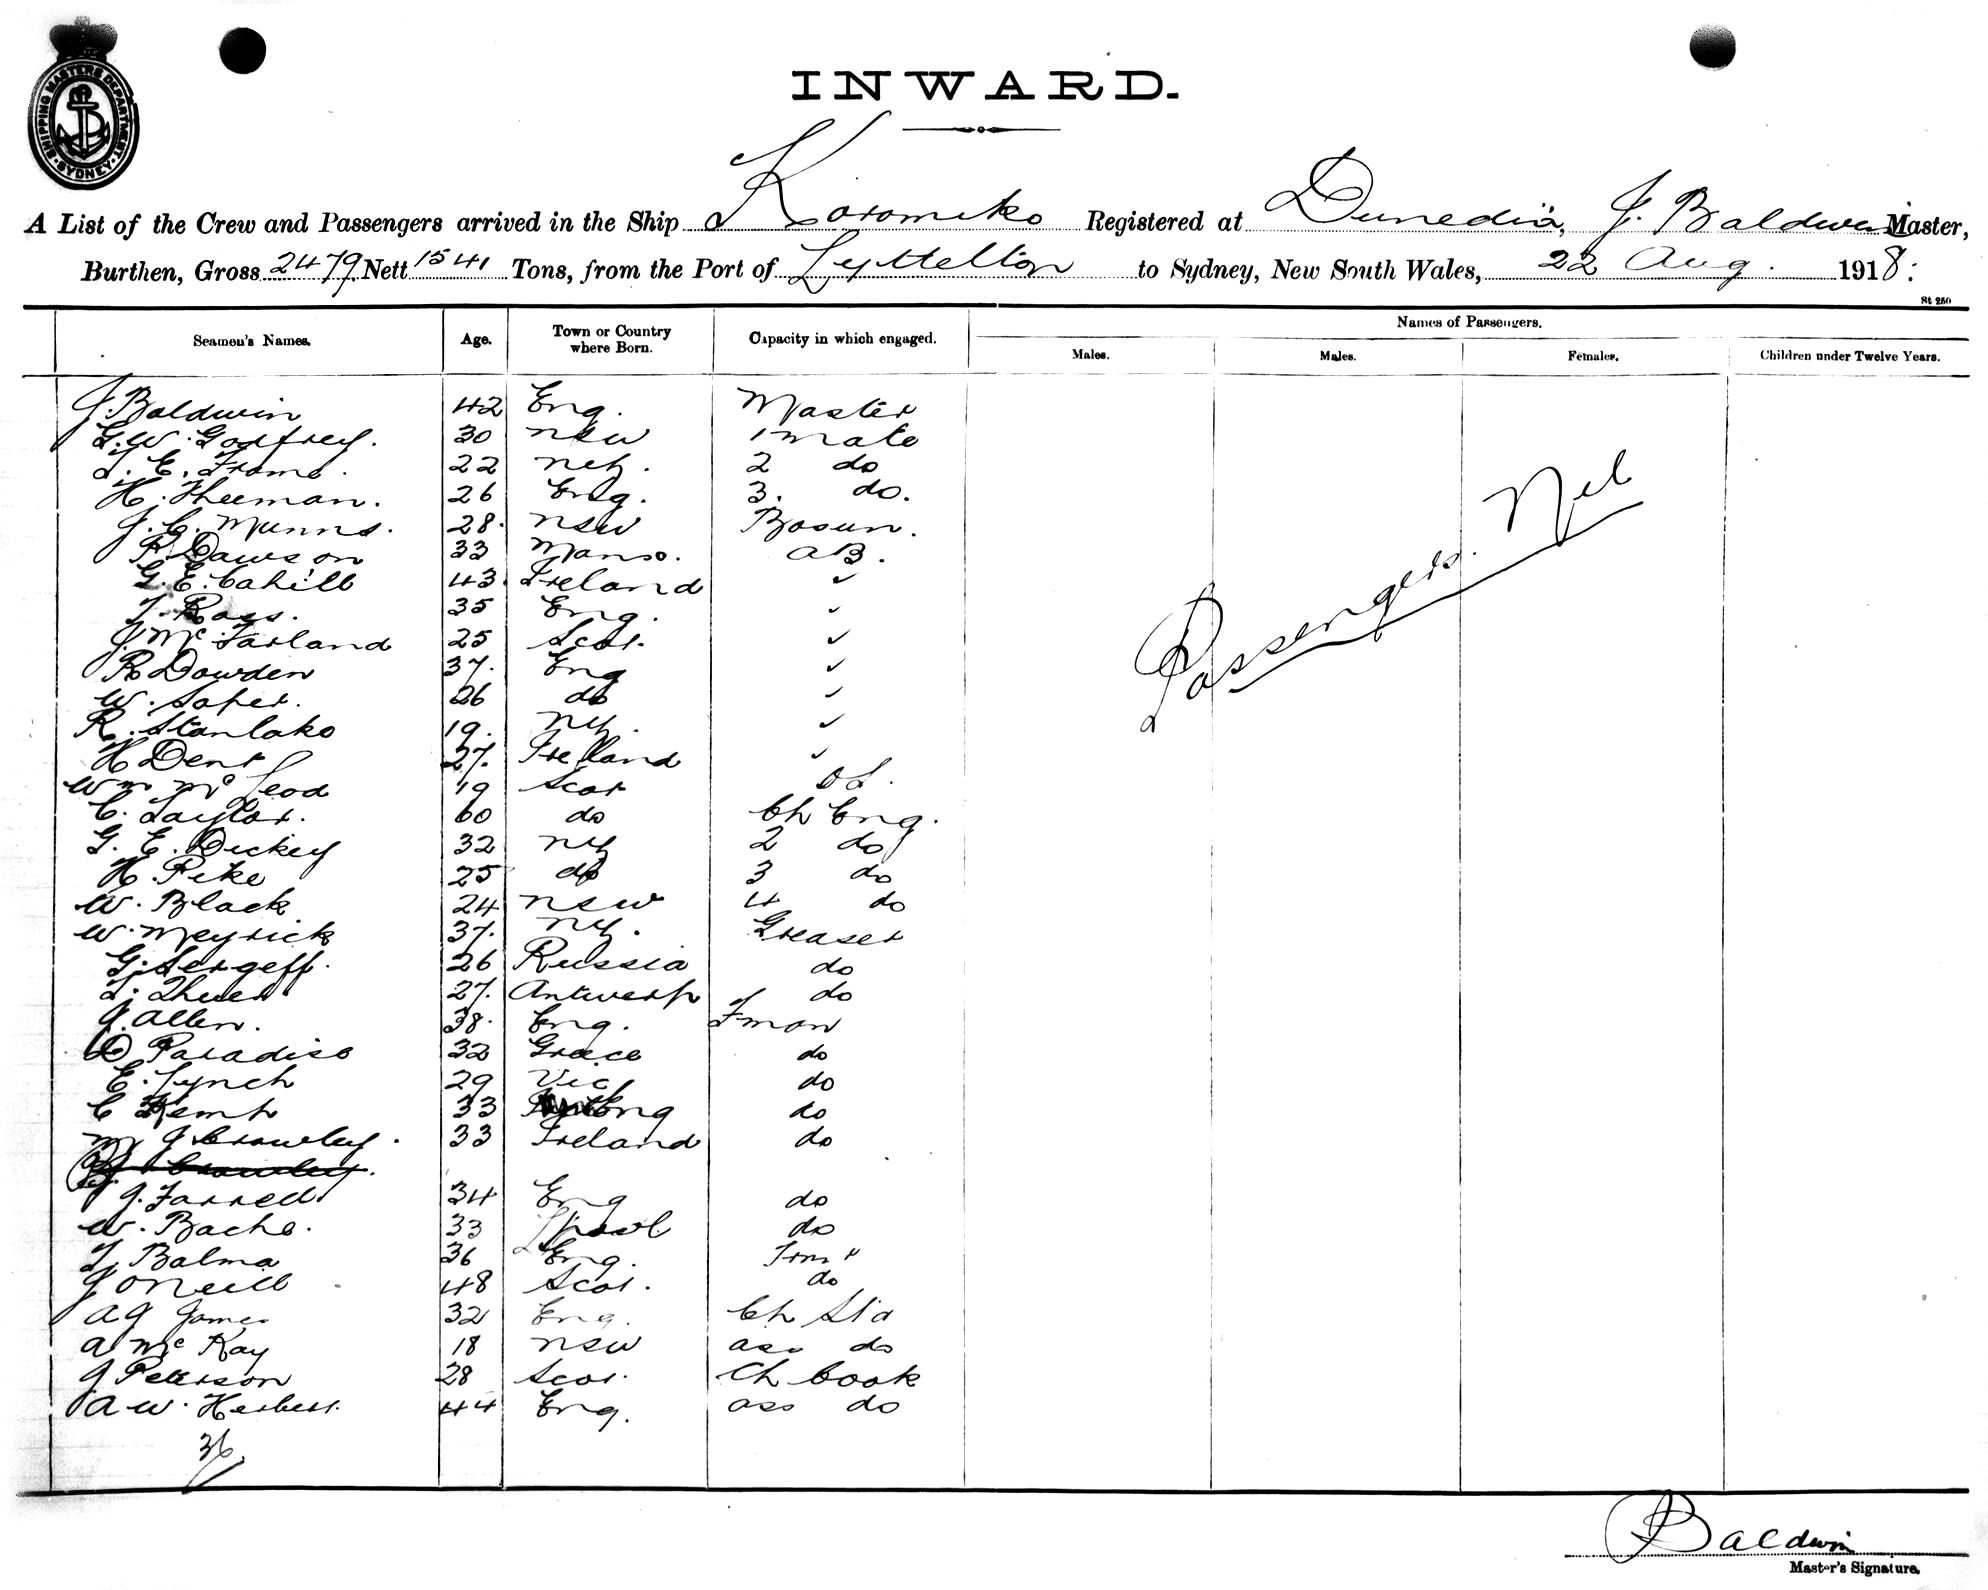 SHIPPING MASTERS DEPARTMENT. SYDNEY
INWARD.
A List of the Crew and Passengers arrived in the Ship Koromiko Registered at Dunedin, J. Baldwin Master,
Burthen, Gross 2479 Nett 1541 Tons, from the Port of Lyttelton to Sydney, New South Wales, 22 Aug. 1918.
St 250
Seamen's Names. Age. Town or Country where Born. Capacity in which engaged. Names of Passengers.
Males. Males. Females. Children under Twelve Years.
J. Baldwin 42 Eng. Master
G. W. Godfrey. 30 NSW 1 Mate
L. E. Frame. 22 NZ. 2 do
H. Theeman. 26 Eng. 3. do.
J. C. Munns. 28. NSW Bosun.
Dawson 33 AB.
G. E. Cahill 43. Ireland ✓
T. Ross. 35 Eng. ✓
J. McFarland 25 Scot. ✓
R Dowden 37. Eng ✓
W. Soper. 26 do ✓
R. Stanlake 19. NZ. ✓
H Dent 27. Ireland ✓
Wm McLeod 19 Scot OS.
C. Taylor. 60 do Ch Eng.
G. E. Dickey 32 NZ 2 do
H. Pike 25 do 3 do
W. Black 24 NSW 4 do
W. Meyrick 37. NZ. Greaser
G. Sergeff. 26 Russia do
27. Antwerp do
J. Allen. 38. Eng. Fman
D Paradise 32 Greece do
E. Lynch 29 Vic do
C Kemp 33 Eng do
M J Crowley. 33 Ireland do
Crowley.
J. Farrell 34 Eng do
W. Bache. 33 Lpool do
T Balma 36 Eng. Trm"
J ONeill 48 Scot. do
A J James 32 Eng. Ch Std
A McKay 18 NSW ass do
J Peterson 28 Scot. Ch Cook
A W. Herbert. 44 Eng. ass do
36
Passengers. Nil
J Baldwin
Master's Signature.